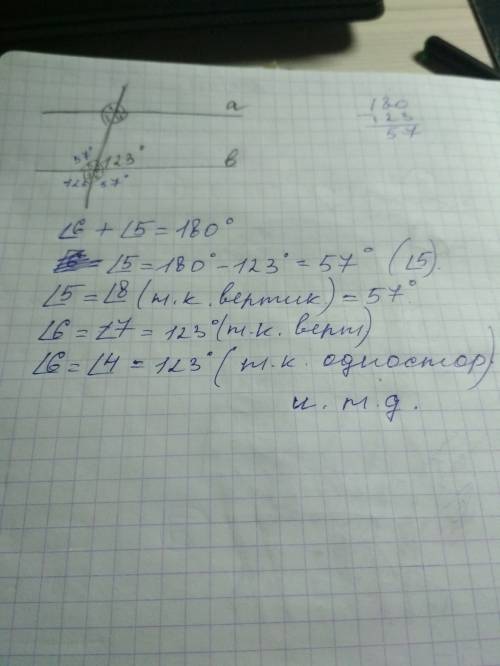 a
180
- 123
57
57° 123° b
123 57°
∠6 + ∠5 = 180°
∠5 = 180° - 123° = 57° (∠5).
∠5 = ∠8 (т.к. вертик) = 57°.
∠6 = ∠7 = 123° (т.к. верт)
∠6 = ∠4 = 123° (т.к. одностор)
и.т.д.